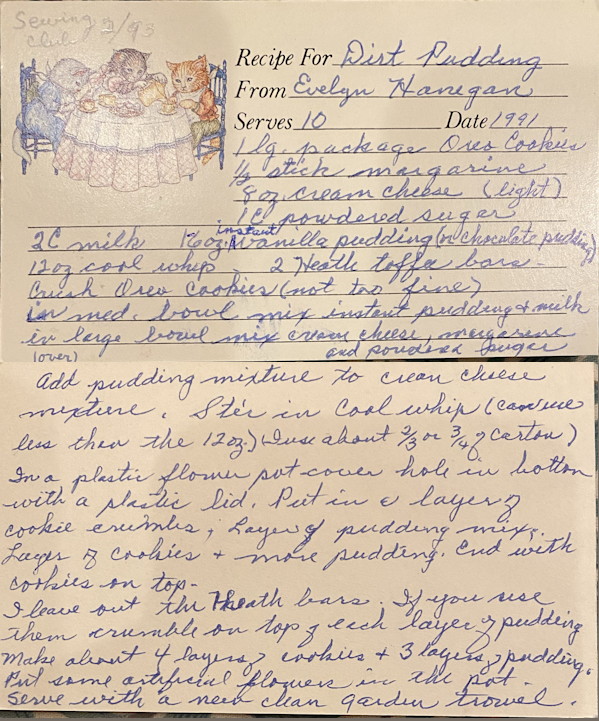 Sewing 2/93
Club
Recipe For Dirt Pudding
From Evelyn Hanegan
Serves 10 Date 1991
1 lg. package Oreo Cookies
½ stick margarine
8 oz cream cheese (light)
1 C powdered sugar
2C milk 16 oz instant vanilla pudding (or chocolate pudding)
12 oz cool whip 2 Heath toffee bars
Crush Oreo Cookies (not too fine)
in med. bowl mix instant pudding & milk
in large bowl mix cream cheese, margarene
(over) and powdered sugar
Add pudding mixture to cream cheese
mixture. Stir in Cool whip (can use
less than the 12 oz.) (I use about 2/3 or 3/4 of carton)
In a plastic flower pot cover hole in bottom
with a plastic lid. Put in a layer of
cookie crumbs, Layer of pudding mix,
Layer of cookies + more pudding. End with
cookies on top-
I leave out the Heath bars. If you use
them crumble on top of each layer of pudding
Make about 4 layers of cookies + 3 layers of pudding.
Put some artificial flowers in the pot.
Serve with a new clean garden trowel.